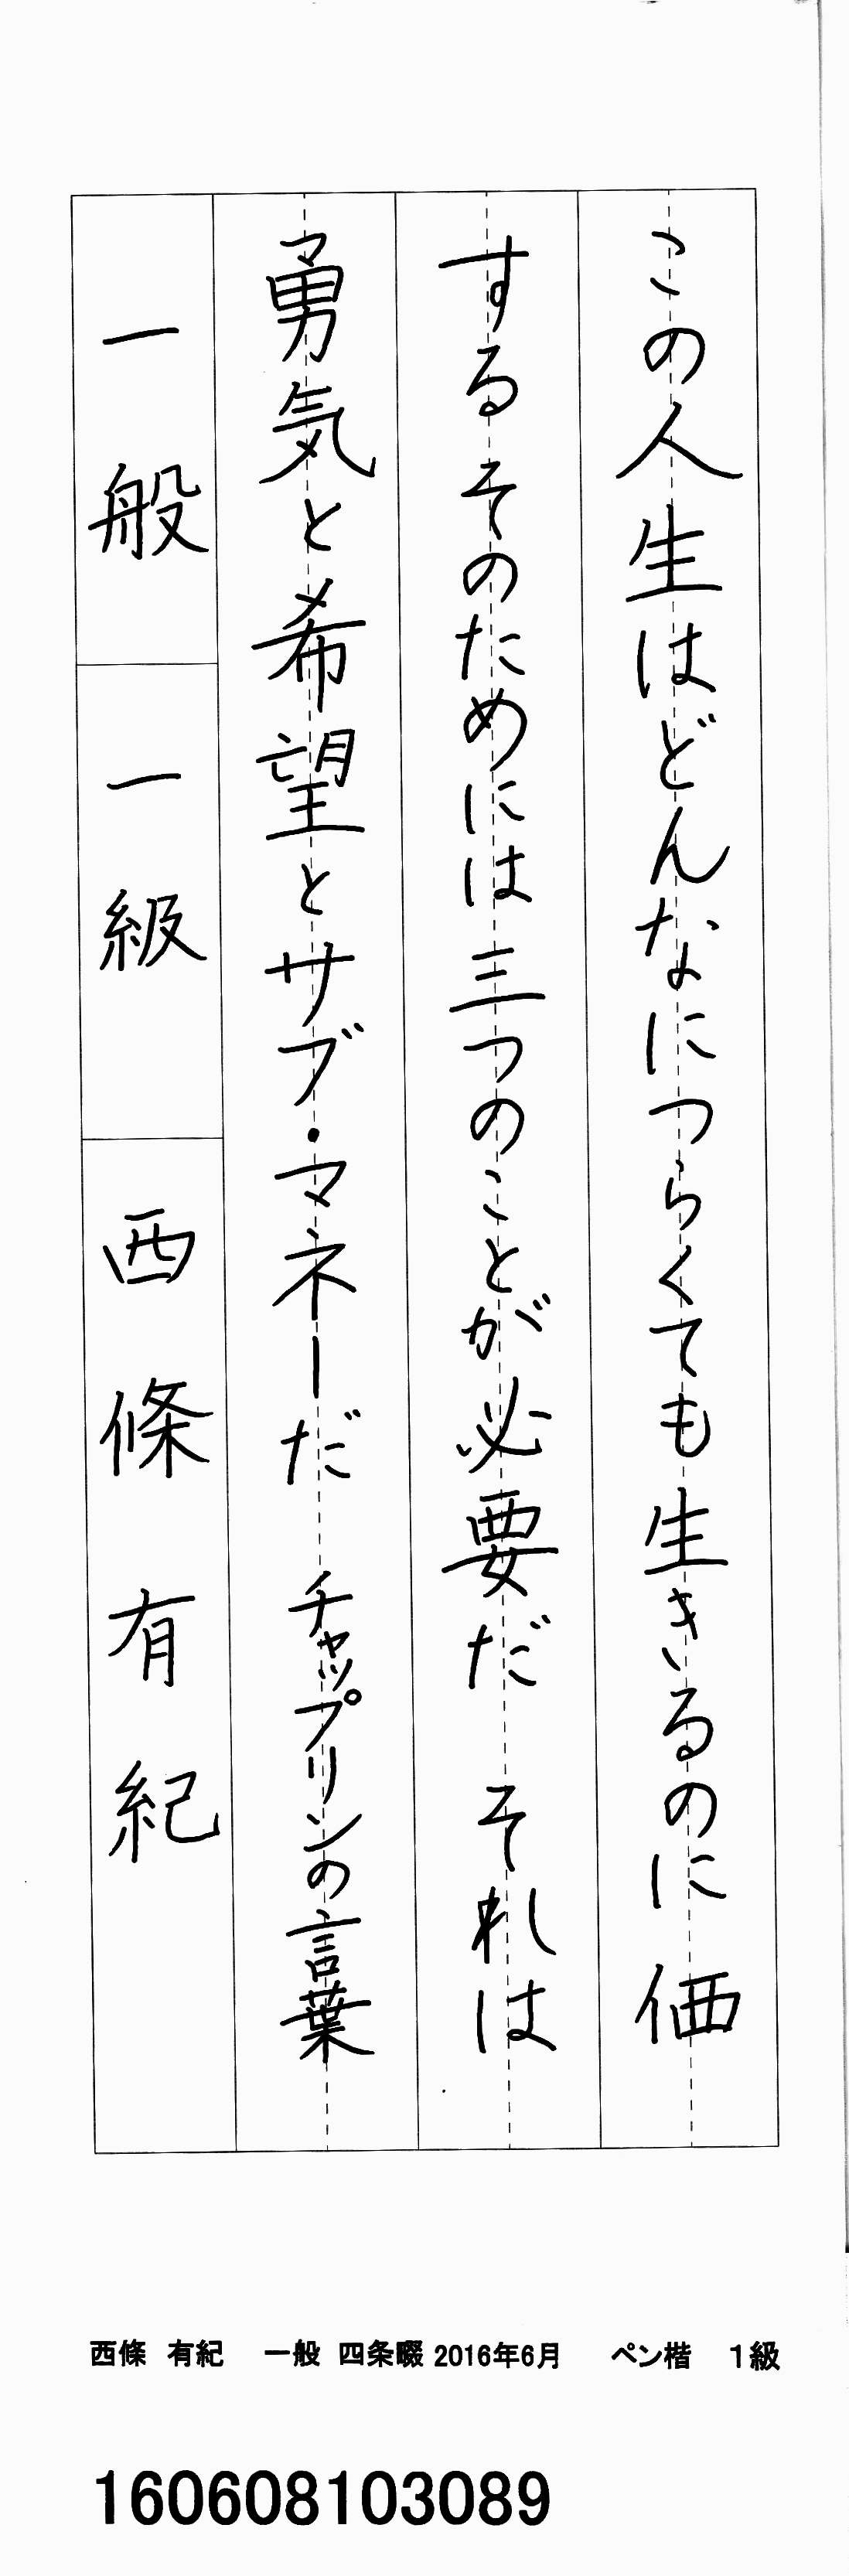 この人生はどんなにつらくても生きるのに価
するそのためには三つのことが必要だ　それは
勇気と希望とサブ・マネーだ　チャップリンの言葉
一般　一級　西條有紀
西條　有紀　一般　四条畷　2016年6月　ペン楷　1級
160608103089